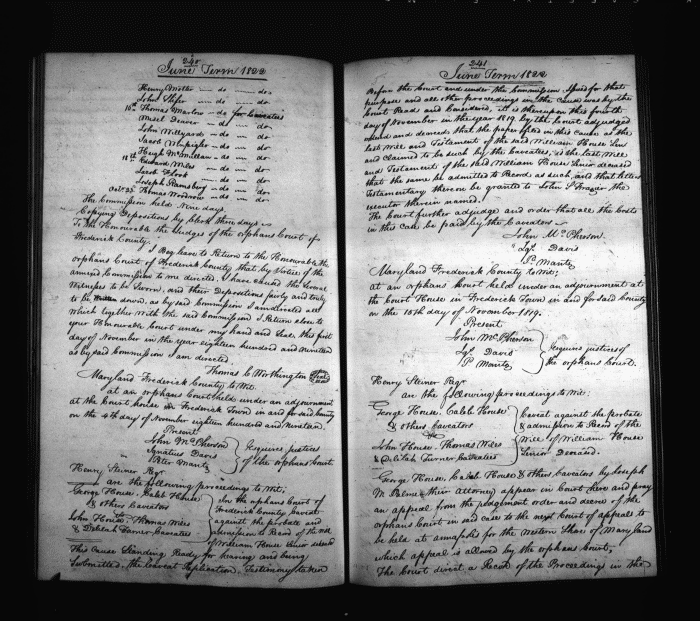 240
June Term 1822
Henry Motter — do — do
John Slifer — do — do
16th Thomas Marlow — do for Caveators
Misel Deaver — do — do
John Willyards — do — do
Jacob — do — do
Hugh McMullan — do — do
18th Richard Miles — do — do
Jacob Flook — do — do
Joseph Ramsburg — do — do
Oct. 23 Thomas Woodrow — do — do
The Commission held Nine days
Copying Depositions by Clerk three days
To the Honourable the Judges of the orphans Court of
Frederick County.
I Beg leave to Return to the Honourable the
orphans Court of Frederick County that by Virtue of the
annexed Commission to me directed, I have caused the several
Witnesses to be Sworn, and their Depositions fairly and truly
to be taken down, as by said Commission I am directed all
which together with the said Commission I Return close to
your Honourable Court under my hand and Seal this first
day of November in the year eighteen hundred and nineteen
as by said Commission I am directed.
Thomas C Worthington Seal
Maryland Frederick County to Wit.
at an orphans Court held under an adjournment
at the Court house in Frederick Town in and for said County
on the 4th day of November eighteen hundred and nineteen.
Present
John McPherson
Ignatius Davis
Peter Mantz
Esquires justices
of the orphans Court
Henry Steiner Regr
are the following proceedings to Wit;
George House, Caleb House
& others Caveators
vs
John House, Thomas Miles
& Delilah Turner Caveatees
In the orphans Court of
Frederick County Caveat
against the probate and
admission to Record of the will
of William House Senior deceased
This Cause Standing Ready for hearing and being
Submitted, the Caveat Replication, Testimony taken
241
June Term 1822
Before the Court and under the Commission Issued for that
purpose and all other proceedings in the Cause was by the
Court Read and Considered, it is thereupon this fourth
day of November in the year 1819, by the Court adjudged
and decreed that the paper filed in this cause as the
last Will and Testament of the said William House Senr
and Claimed to be such by the Caveatees, as the last Will
and Testament of the said William House Senior deceased
that the same be admitted to Record as such, and that letters
Testamentary thereon be granted to John S Frazier the
executor therein named.
The Court further adjudge and order that all the Costs
in this case be paid by the Caveators
John McPherson
Igs Davis
P. Mantz
Maryland Frederick County to Wit;
at an orphans Court held under an adjournment at
the Court House in Frederick Town in and for said County
on the 15th day of November 1819.
Present
John McPherson
Igs Davis
P Mantz
Esquires justices of
the orphans Court.
Henry Steiner Regr
are the following proceedings to Wit:
George House, Caleb House
& others Caveators
vs
John House, Thomas Miles
& Delilah Turner Caveatees
Caveat against the probate
& admission to Record of the
Will of William House
Senior Deceased.
George House, Caleb House & others Caveators by Joseph
M Palmer their Attorney appear in Court here and pray
an appeal from the judgement order and decree of the
orphans Court in said case to the next Court of appeals to
be held at annapolis for the Western Shore of Maryland
which appeal is allowed by the orphans Court;
The Court direct a Record of the Proceedings in the